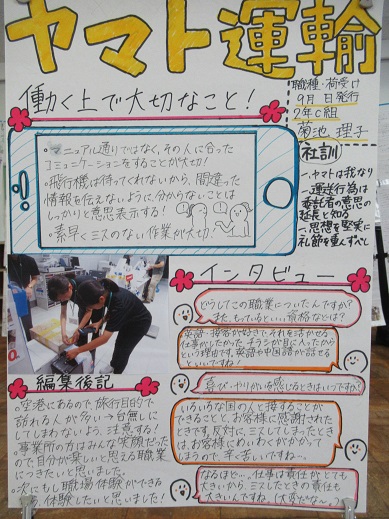 ヤマト運輸
働く上で大切なこと!
職種・荷受け
9月 日発行
2年C組
菊池 理子
・マニュアル通りではなく、その人に合った
コミュニケーションをすることが大切!
・飛行機は待ってくれないから、間違った
情報を伝えないように、分からないことは
しっかりと意思表示する!
・素早くミスのない作業が大切
社訓
・ヤマトは我なり
・運送行為は
委託者の意思の
延長と知る
・思想を堅実に
礼節を重んずべし
インタビュー
どうしてこの職業についたんですか?
また、もっているといい資格などは?
英語・接客が好きでそれを活かせる
仕事がしたかった。チラシが目に入ったから
という理由です。英語や中国語が話せる
といいですね!
喜び・やりがいを感じるときはいつですか?
いろいろな国の人と接することが
できることと、お客様に感謝されたとき
です。反対にミスしてしまったとき
はお客様にめいわくがかかって
しまうので、辛く苦しいですね…
なるほど…。仕事は責任がとても
大きいから、ミスしたときの責任も
大きいんですね。(大変だな〜。)
編集後記
・空港にあるので、旅行目的で
訪れる人が多い→台無しに
してしまわないよう、注意する!
・事業所の方はみんな笑顔だった
ので自分が楽しいと思える職業
につきたいと思いました。
・次にもし職場体験ができる
体験したいと思いました!